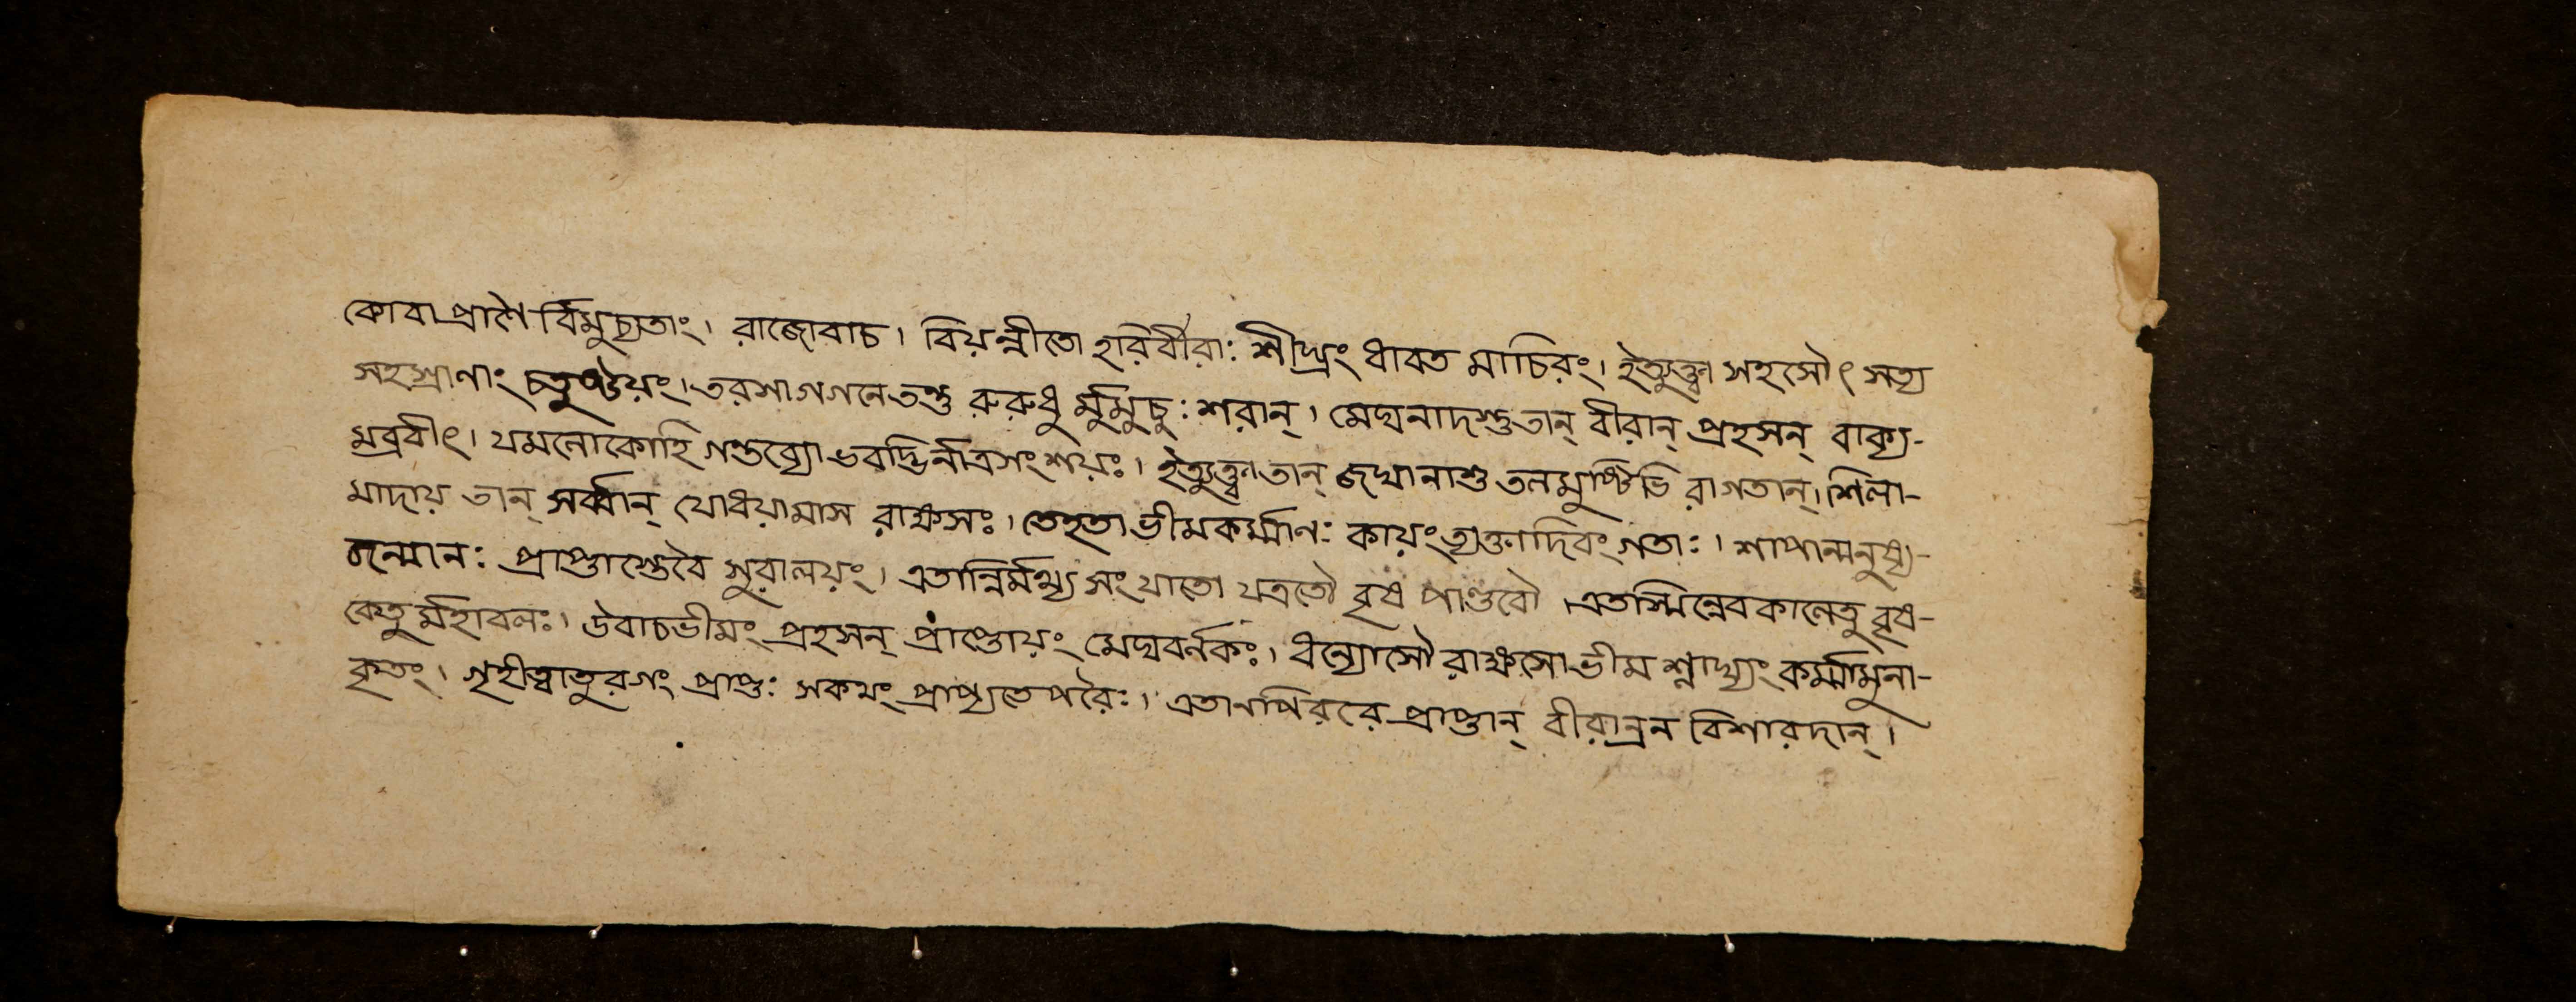 কোবা প্রাণৈ র্বিমুচ্যতাং। রাজোবাচ। বিয়ন্নীতো হরির্বীরাঃ শীঘ্রং ধাবত মাচিরং। ইত্যুক্ত্বা সহসোৎ সত্য
সহস্রাণাং চতুষ্টয়ং। তরসা গগনে তন্তু রুরুধু র্মুমুচুঃ শরান্। মেঘনাদস্তু তান্ বীরান্ প্রহসন্ বাক্য-
মব্রবীৎ। যমলোকোহি গন্তব্যো ভবদ্ভির্নাত্রসংশয়ঃ। ইত্যুক্ত্বা তান্ জঘানাশু তলমুষ্টিভি রাগতান্। শিলা-
মাদায় তান্ সর্ব্বান্ যোধয়ামাস রাক্ষসঃ। তেহতা ভীমকর্ম্মাণঃ কায়ং ত্যক্তাদিবং গতাঃ। শাপান্মনুষ্য-
জন্মানঃ প্রাপ্তাস্তেবৈ সুরালয়ং। এতান্নির্মথ্য সংযাতো যত্রতৌ বৃষ পাণ্ডবৌ। এতস্মিন্নেব কালেতু বৃষ-
কেতু র্মহাবলঃ। উবাচভীমং প্রহসন্ প্রাপ্তোয়ং মেঘবর্নকঃ। ধন্যোসৌ রাক্ষসো ভীম শ্লাঘ্যং কর্ম্মামুনা-
কৃতং। গৃহীত্বাতুরগং প্রাপ্তঃ সকথং প্রাপ্যতে পরৈঃ। এতান প্রাপ্তান্ বীরান্রন বিশারদান্।